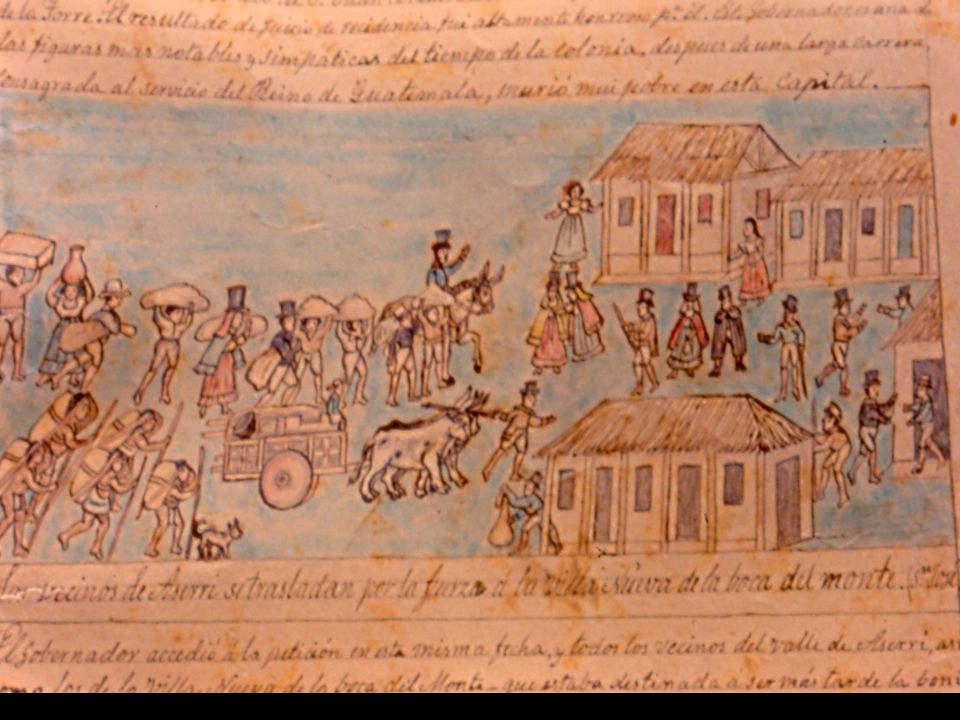 de la Torre. El resultado de juicio de residencia fué altamente honrroso pª él. Este Gobernador es una de
las figuras mas notables y simpáticas del tiempo de la colonia, despues de una larga carrera,
consagrada al servicio del Reino de Guatemala, murió mui pobre en esta Capital.
Los vecinos de Aserrí se trasladan por la fuerza á la Villa Nueva de la boca del monte. (Sn José
El Gobernador accedió á la petición en esta misma fecha, y todos los vecinos del valle de Aserrí, así
como los de la Villa Nueva de la boca del Monte - que estaba destinada a ser más tarde la